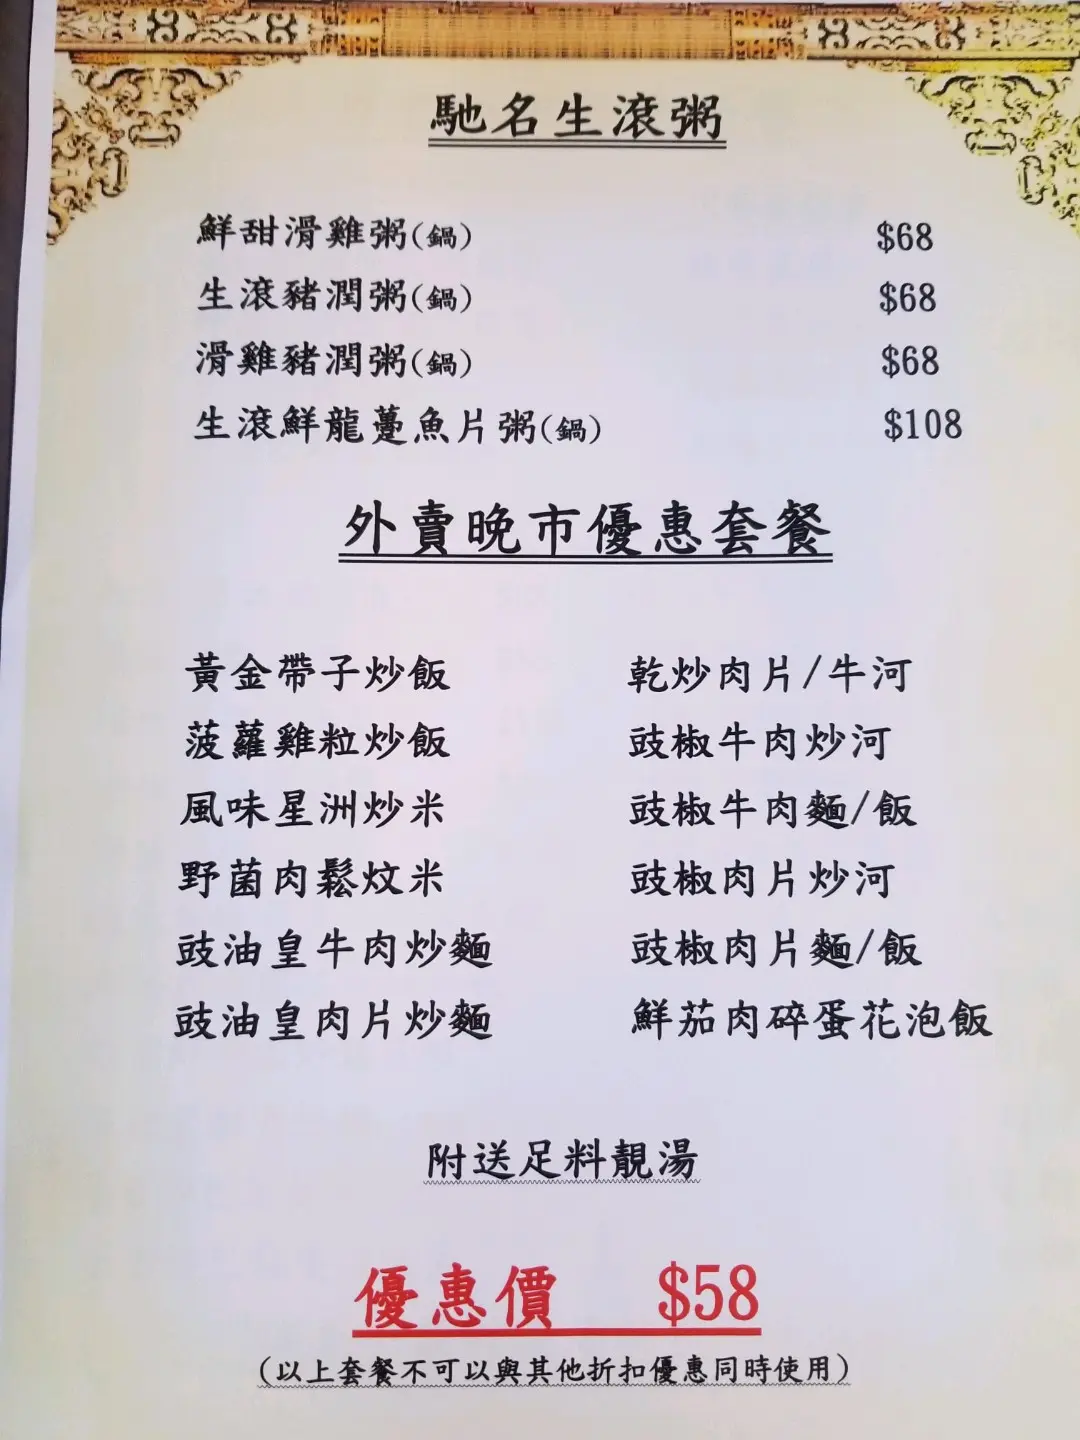 馳名生滾粥
鮮甜滑雞粥(鍋) $68
生滾豬潤粥(鍋) $68
滑雞豬潤粥(鍋) $68
生滾鮮龍躉魚片粥(鍋) $108
外賣晚市優惠套餐
黃金帶子炒飯 乾炒肉片/牛河
菠蘿雞粒炒飯 豉椒牛肉炒河
風味星洲炒米 豉椒牛肉麵/飯
野菌肉鬆炆米 豉椒肉片炒河
豉油皇牛肉炒麵 豉椒肉片麵/飯
豉油皇肉片炒麵 鮮茄肉碎蛋花泡飯
附送足料靚湯
優惠價 $58
(以上套餐不可以與其他折扣優惠同時使用)